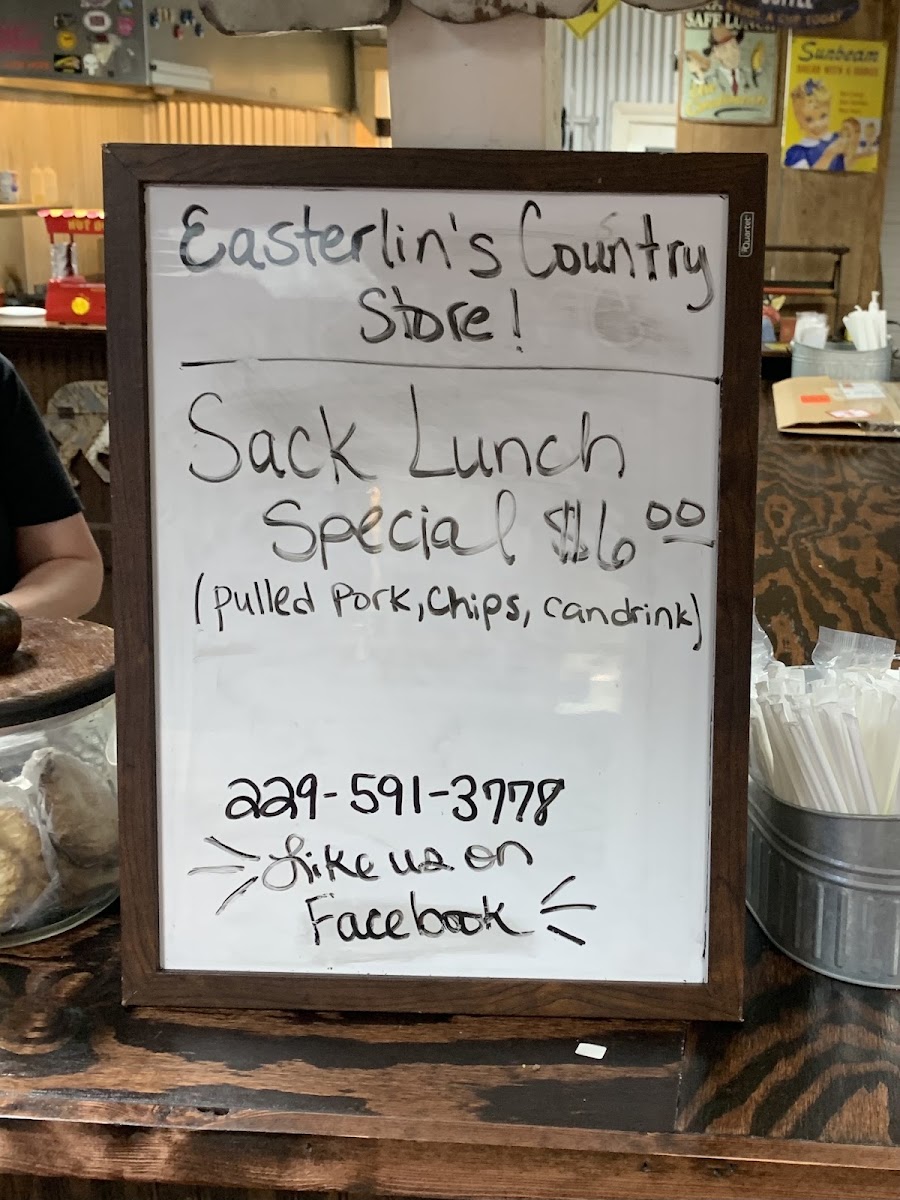 SAFE LUN
Sunbeam
HOT D
Quartet
Easterlin's Country
Store!
Sack Lunch
Special $6.00
(pulled pork, chips, candrink)
229-591-3778
Like us on
Facebook